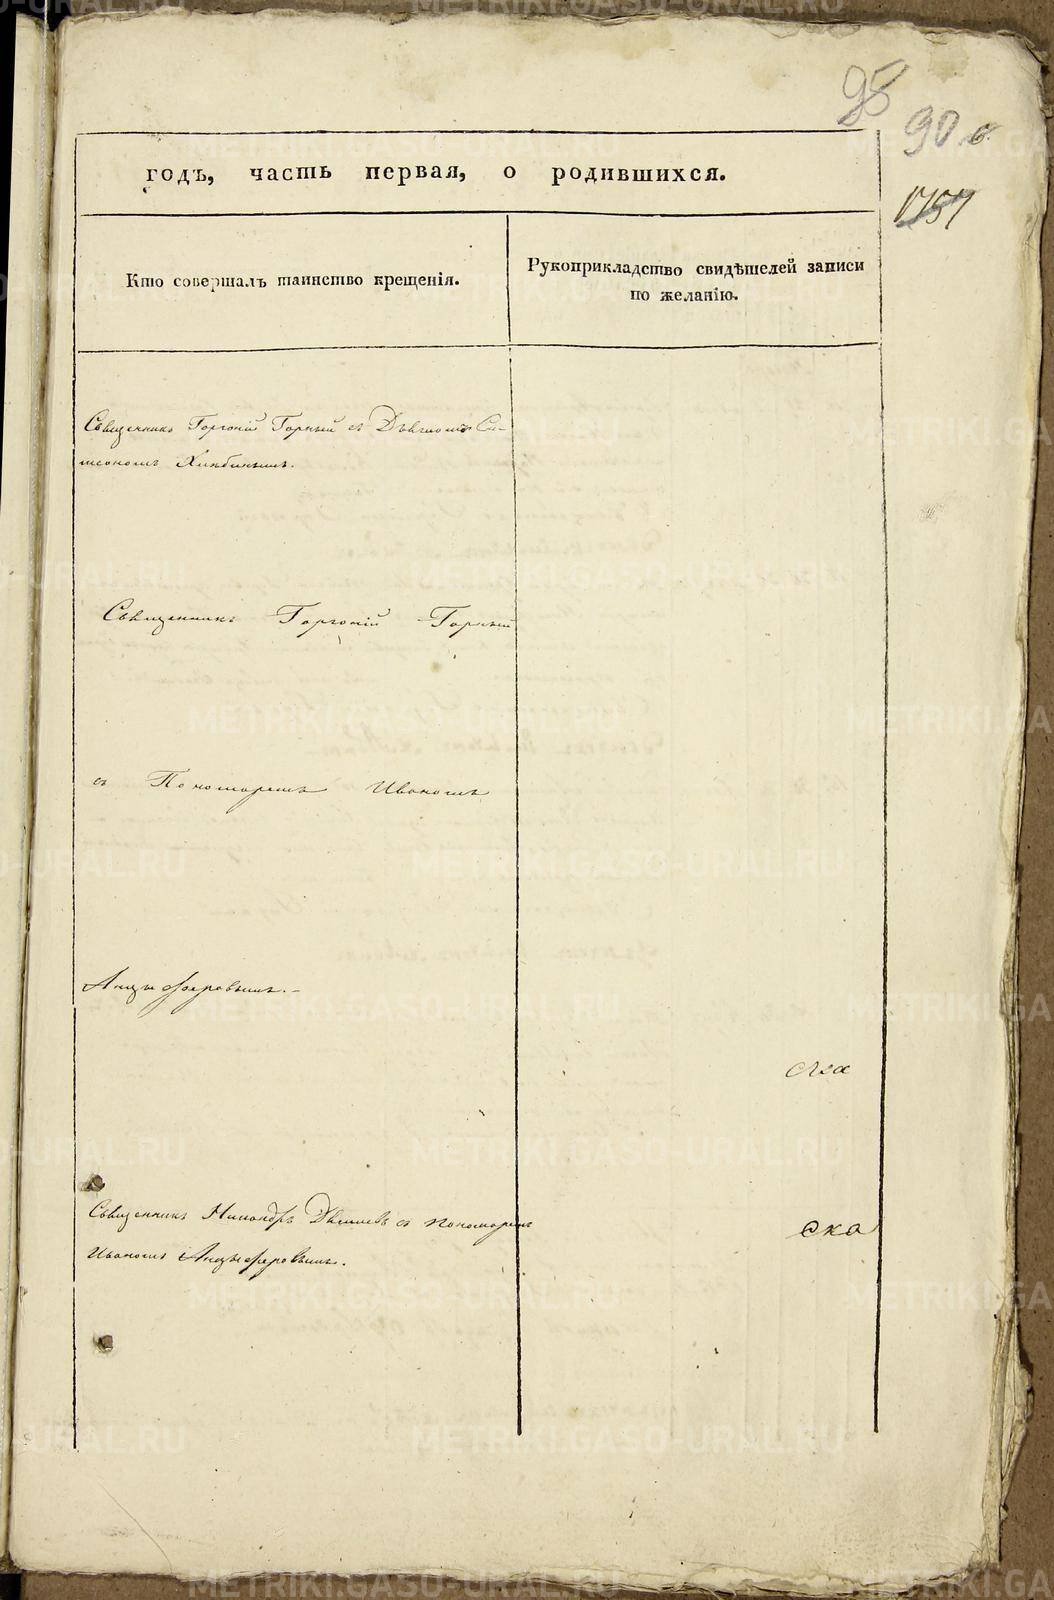 95
90 б.
1757
годъ, часть первая, о родившихся.
Кто совершалъ таинство крещенія.
Рукоприкладство свидѣтелей записи
по желанію.
Священникъ Горгоній Горный съ Дьячкомъ Си-
меономъ Хлябинымъ.
Священникъ Горгоній Горный
съ Пономаремъ Иваномъ
Анцыферовымъ.
Священникъ Никандръ съ пономаремъ
Иваномъ Анцыферовымъ.
ска
METRIKI.GASO-URAL.RU